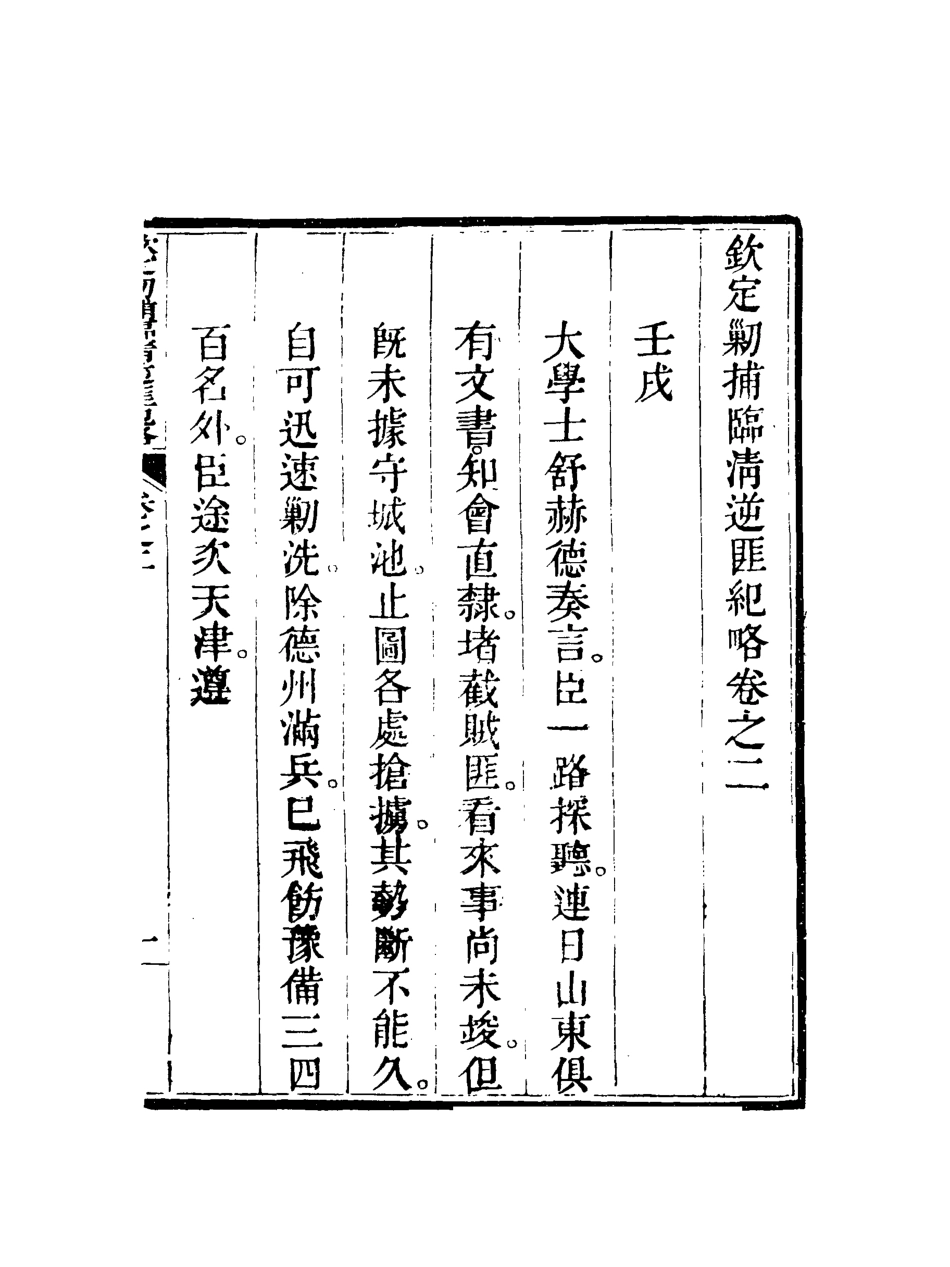 欽定勦捕臨淸逆匪紀略卷之二
壬戌
大學士舒赫德奏言。臣一路探聽。連日山東俱
有文書。知會直隸。堵截賊匪。看來事尚未竣。但
旣未據守城池。止圖各處搶擄。其勢斷不能久。
自可迅速勦洗。除德州滿兵。已飛飭豫備三四
百名外。臣途次天津。遵